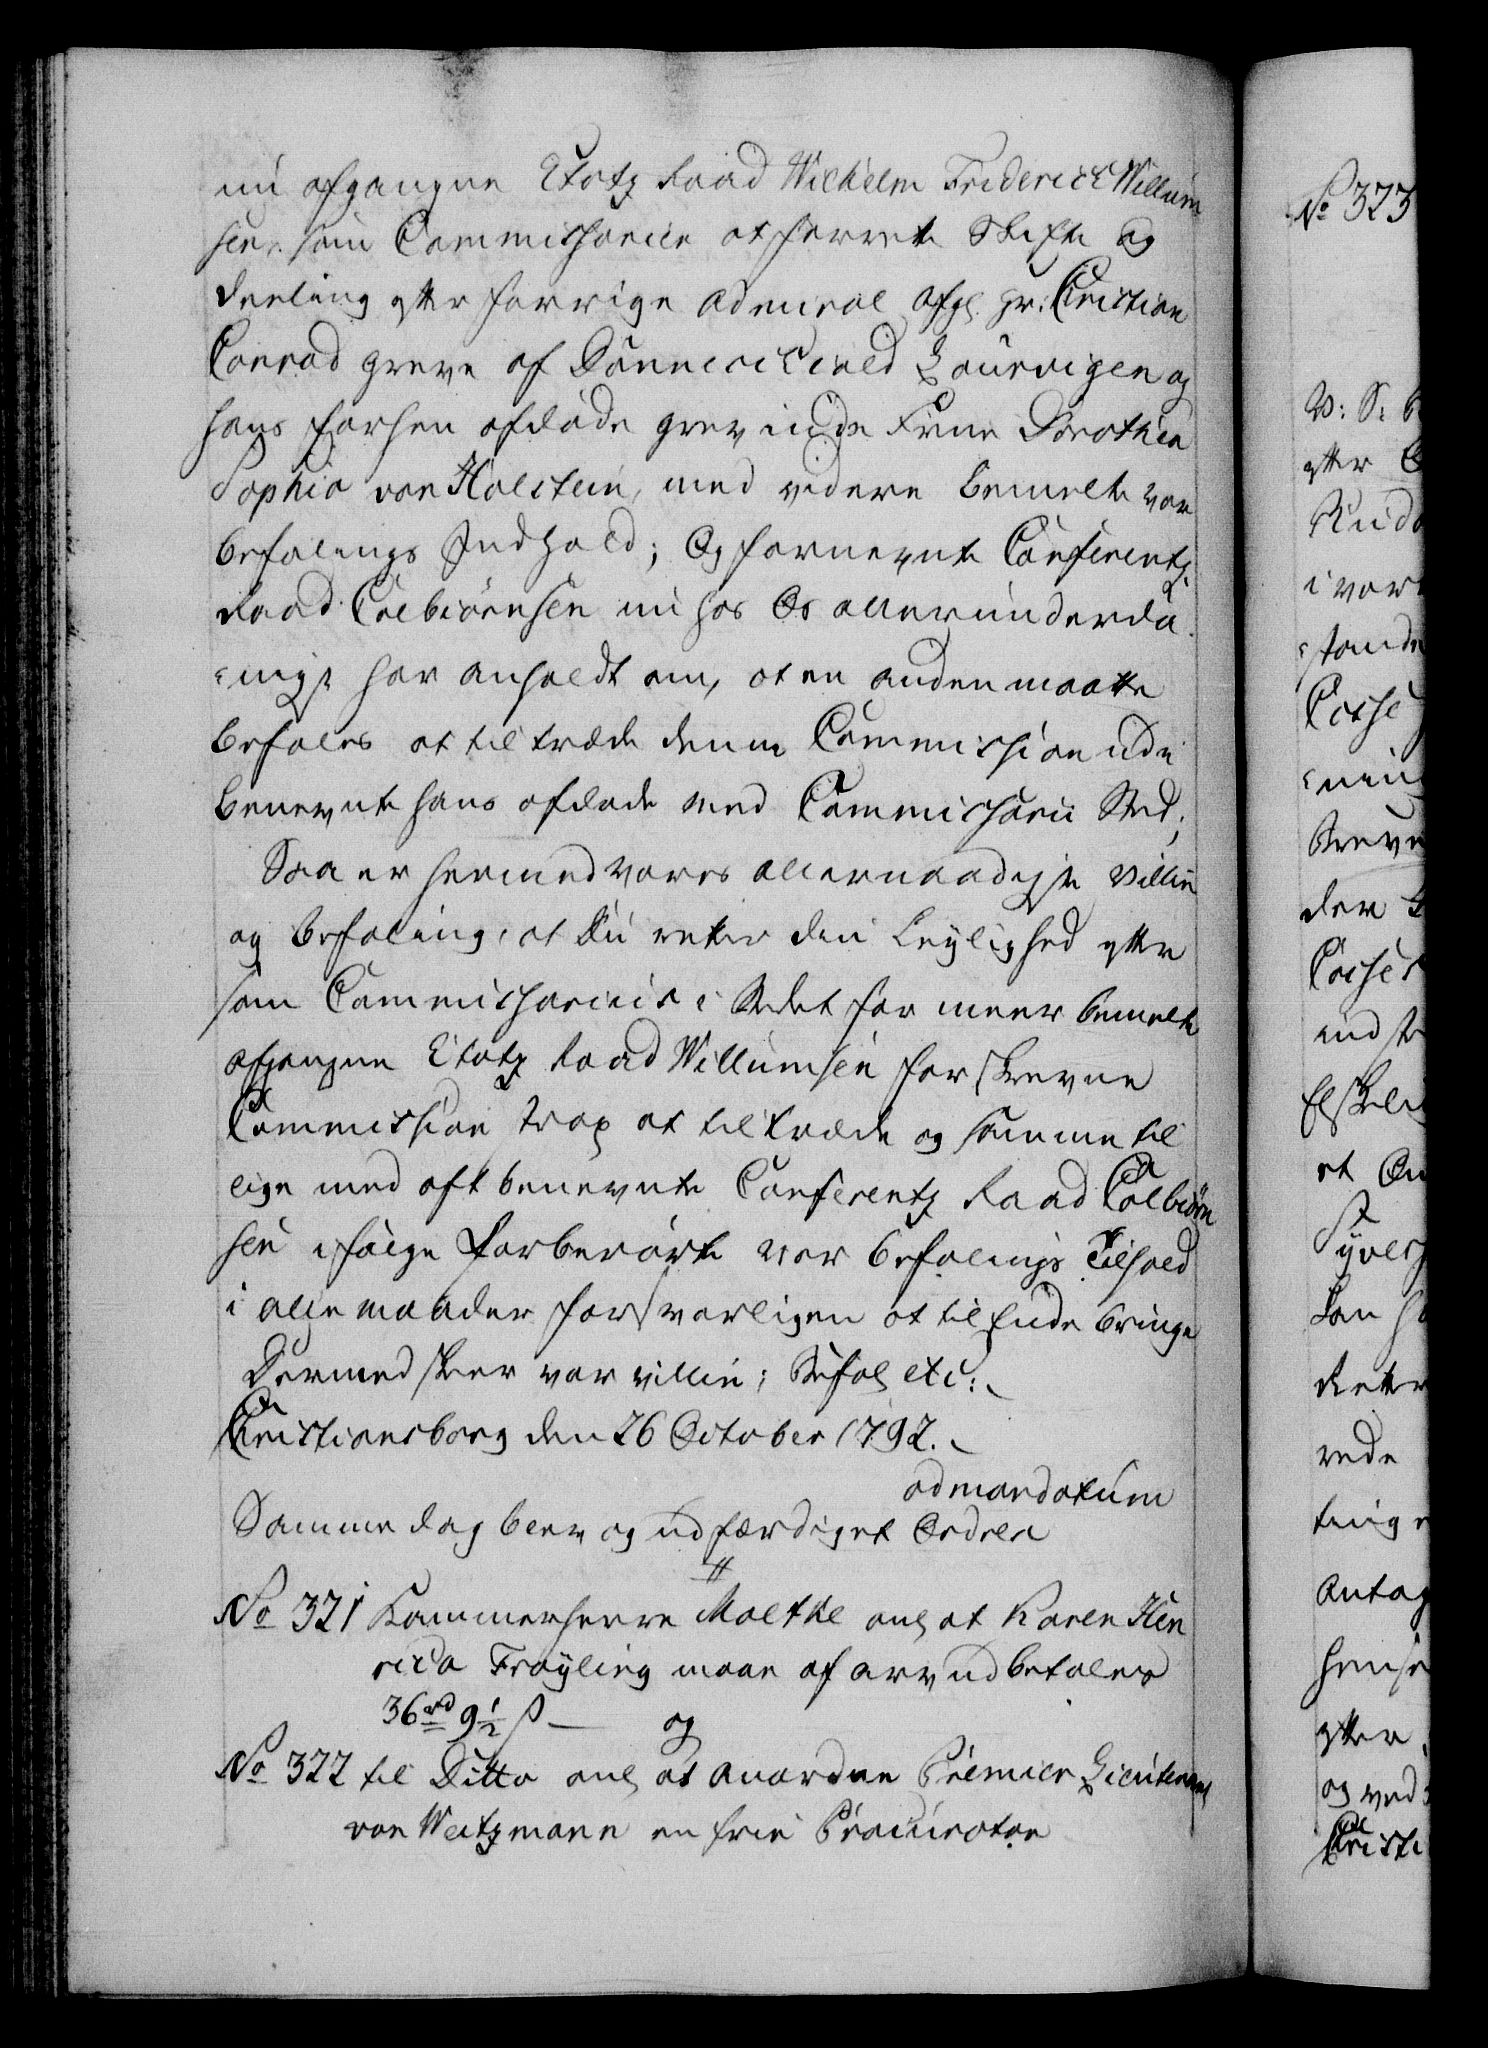 nu afgangne Etatz Raad Wilhelm Friderich Willum
sen som Commissarier at forrette Skifte og
Deeling efter forrige Admiral afg. Hr: Christian
Conrad Greve af Danneschiold Laurvigen og
hans forhen afdøde Grevinde Frue Dorothea
Sophia von Holstein, med videre bemelte vor
befalings Indhold; Og fornevnte Conferentz
Raad Colbiørnsen nu hos Os allerunderda
-nigst har anholdt om, at en anden maatte
befales at tiltræde denne Commission udi
benevnte hans afdøde Med Commissarii Sted;
Saa er hermed vores allernaadigste Villie
og befaling, at Du retter din Leylighed efter
som Commissarius i Stedet for meer bemelte
afgangne Etatz Raad Willumsen forskrevne
Commission strax at tiltræde og samme til
lige med oft benevnte Conferentz Raad Colbiørn
sen i følge forberørte vor befalings Tilhold
i alle maader forsvarligen at tilEnde bringe
Dermed skeer vor villie; Befal. etc:
Christiansborg den 26 October 1792.
ad mandatum
Samme dag blev og udfærdiget Ordrer
No 321 Kammerherre Moltke ang at Karen Hen
rica Frøyling maae af arv udbetales
36 rd 9½ ß og
No 322 til Ditto ang at anordne Premier Lieutenant
von Weitzmann en frie Procurator
No 323